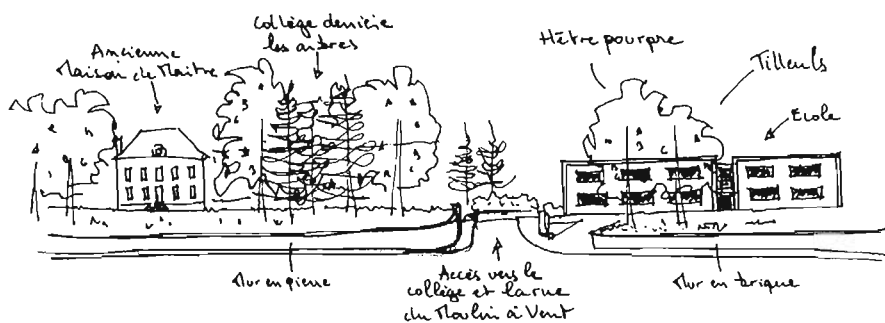 Ancienne
Maison de Maître
Collège derrière
les arbres
Hêtre pourpre
Tilleuls
Ecole
Mur en pierre
Accès vers le
collège et la rue
du Moulin à Vent
Mur en brique